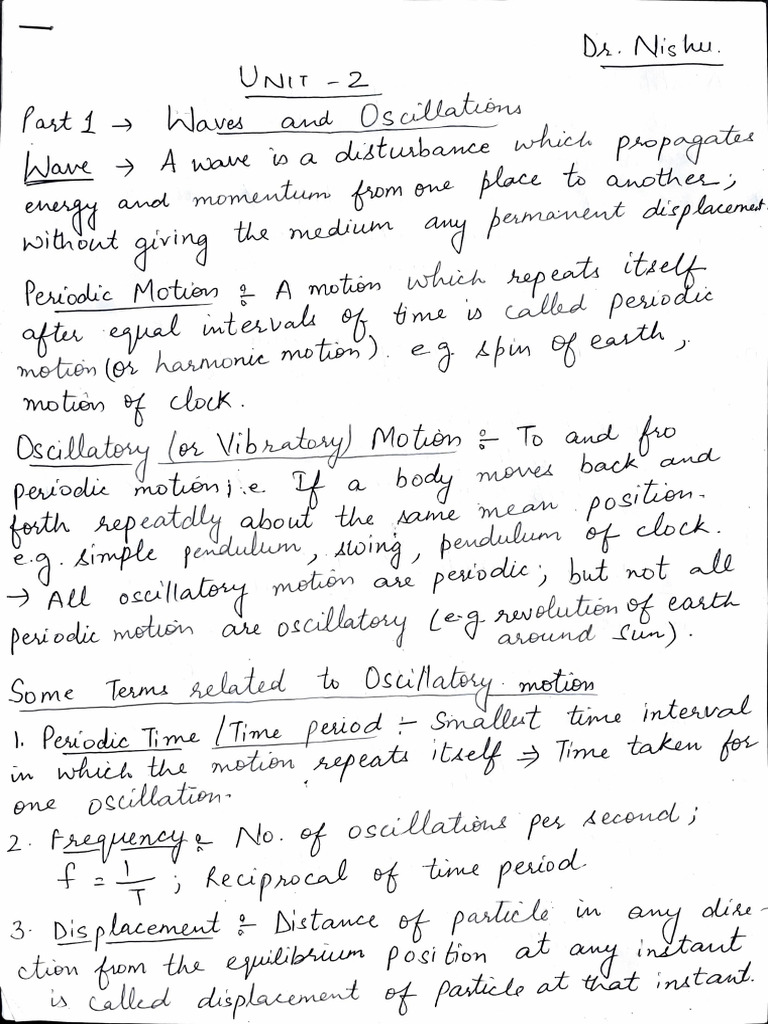 Dr. Nishu.
UNIT - 2
Part 1 → Waves and Oscillations
Wave → A wave is a disturbance which propagates
energy and momentum from one place to another;
without giving the medium any permanent displacement.
Periodic Motion :- A motion which repeats itself
after equal intervals of time is called periodic
motion (or harmonic motion). e.g. spin of earth,
motion of clock.
Oscillatory (or Vibratory) Motion :- To and fro
periodic motion; i.e. If a body moves back and
forth repeatdly about the same mean position.
e.g. simple pendulum, swing, pendulum of clock.
→ All oscillatory motion are periodic; but not all
periodic motion are oscillatory (e.g revolution of earth
around sun).
Some Terms related to Oscillatory motion
1. Periodic Time / Time period :- Smallest time interval
in which the motion repeats itself ⇒ Time taken for
one oscillation.
2. Frequency :- No. of oscillations per second;
f = 1/T ; Reciprocal of time period.
3. Displacement :- Distance of particle in any dire-
ction from the equilibrium position at any instant
is called displacement of particle at that instant.